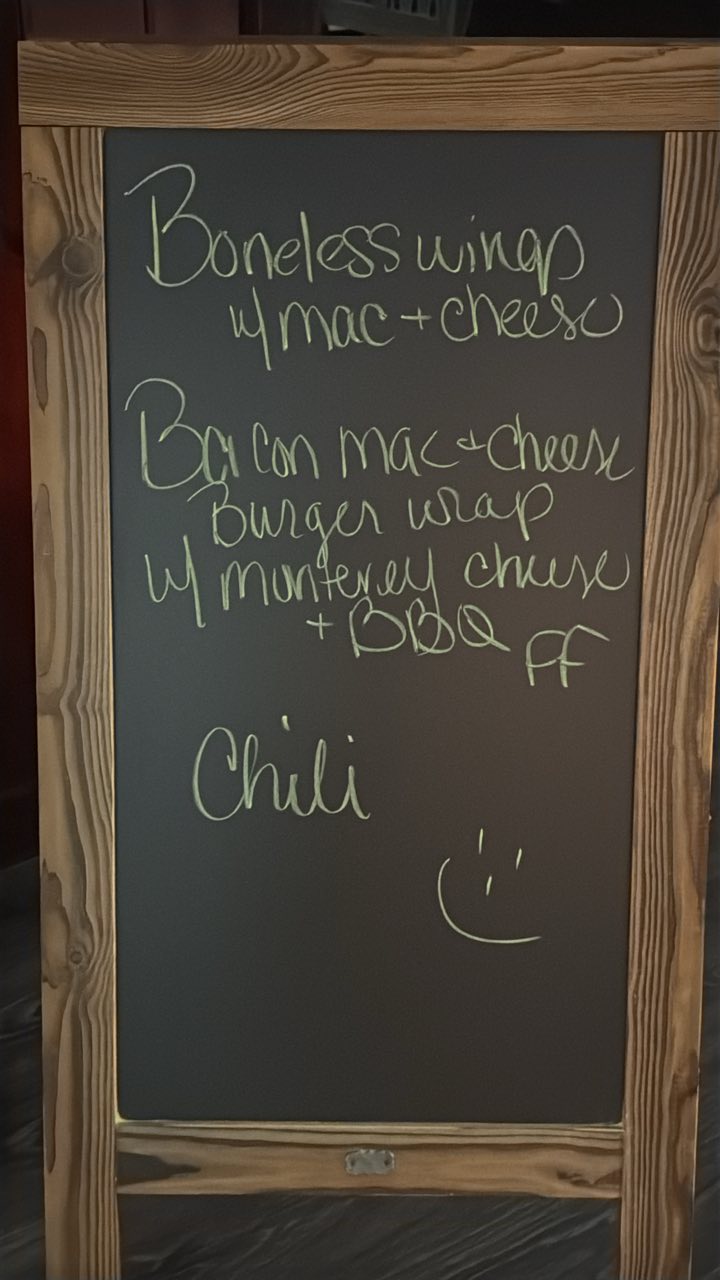 Boneless wings
w/ mac + cheese
Bacon mac + cheese
Burger wrap
w/ monterey cheese
+ BBQ FF
Chili